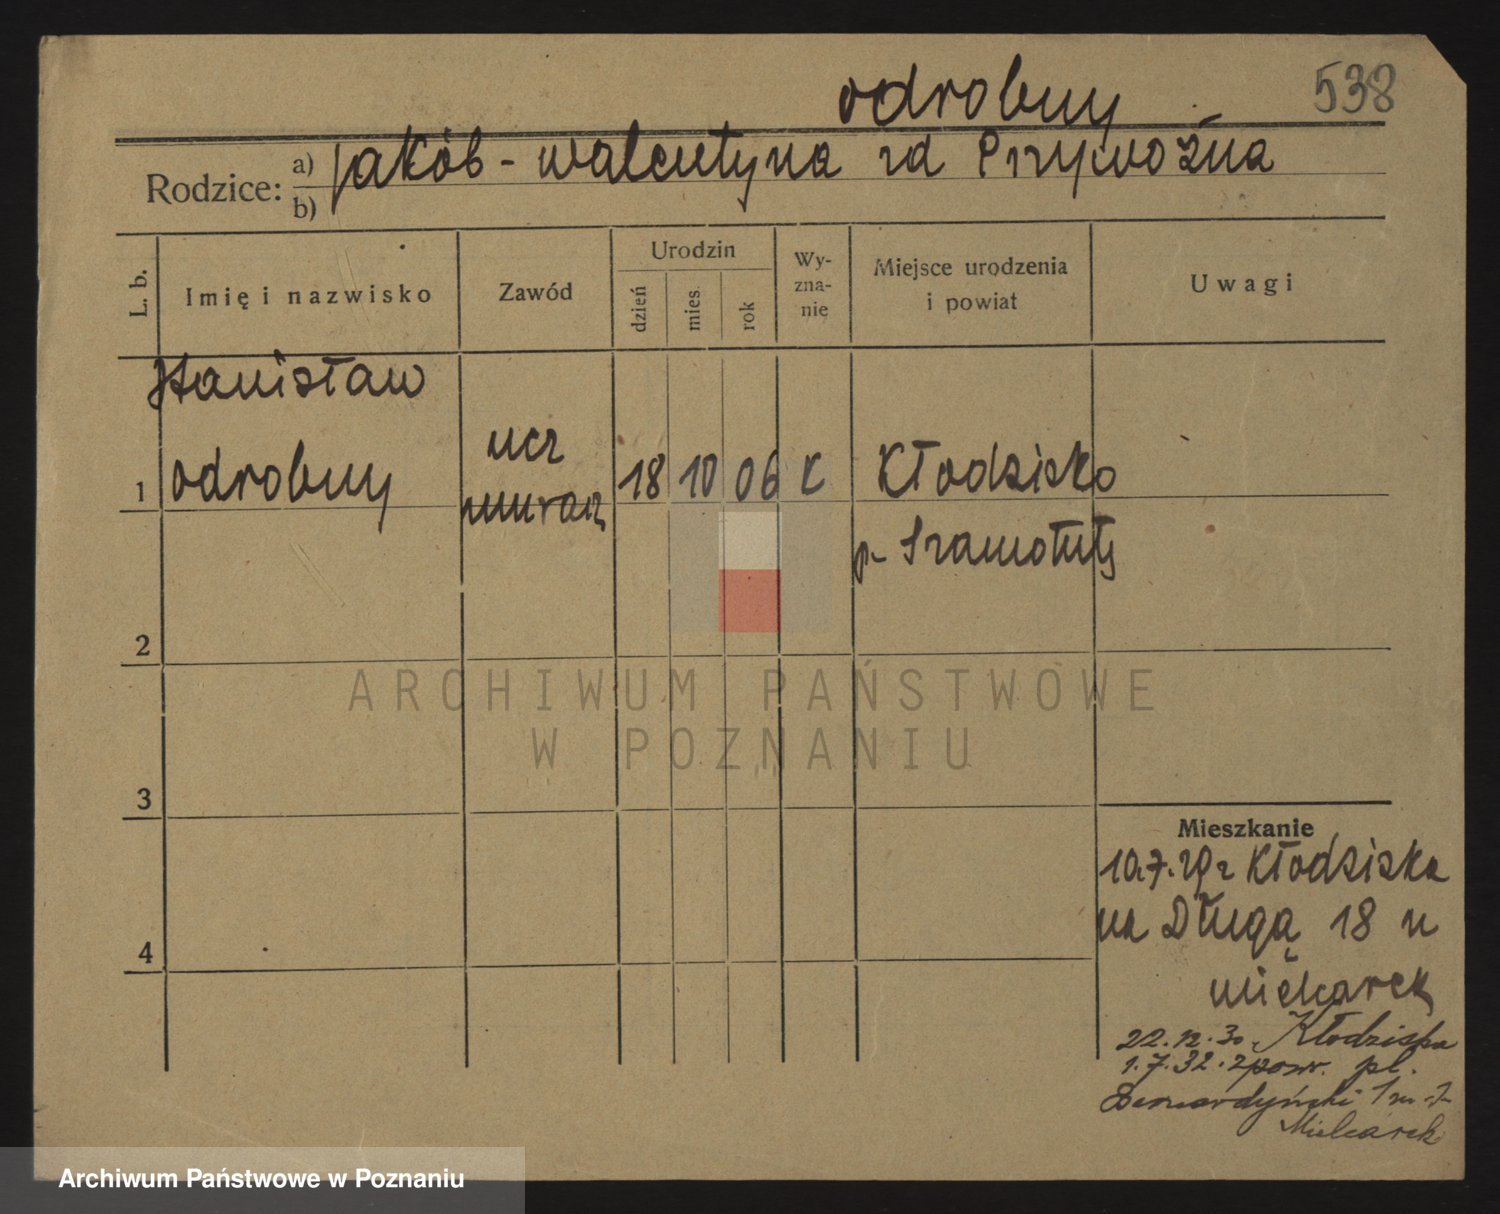 538
odrobny
Rodzice: a) b) Jakób - Walentyna zd Przywoźna
L. b.
Imię i nazwisko
Zawód
Urodzin
dzień
mies.
rok
Wy-
zna-
nie
Miejsce urodzenia
i powiat
Uwagi
Stanisław
1 odrobny
ucz
murarz
18 10 06 K
Kłodzisko
p. Szamotuły
2
3
4
ARCHIWUM PAŃSTWOWE
W POZNANIU
Mieszkanie
10.7.29 z Kłodziska
na Długą 18 u
Mielcarek
22.12.30. Kłodziska
1.7.32. z pow. pl.
Bernardyński 1
Mielcarek
Archiwum Państwowe w Poznaniu